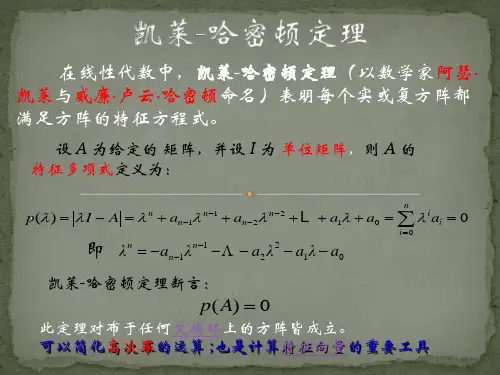 凯莱-哈密顿定理
在线性代数中，凯莱-哈密顿定理（以数学家阿瑟·
凯莱与威廉·卢云·哈密顿命名）表明每个实或复方阵都
满足方阵的特征方程式。
设 A 为给定的 矩阵，并设 I 为 单位矩阵，则 A 的
特征多项式定义为：
p(λ) = |λI − A| = λⁿ + aₙ₋₁λⁿ⁻¹ + aₙ₋₂λⁿ⁻² + L + a₁λ + a₀ = ∑ᵢ₌₀ⁿ λⁱaᵢ = 0
即 λⁿ = −aₙ₋₁λⁿ⁻¹ − Λ − a₂λ² − a₁λ − a₀
凯莱-哈密顿定理断言：
p(A) = 0
此定理对布于任何交换环上的方阵皆成立。
可以简化高次幂的运算；也是计算特征向量的重要工具